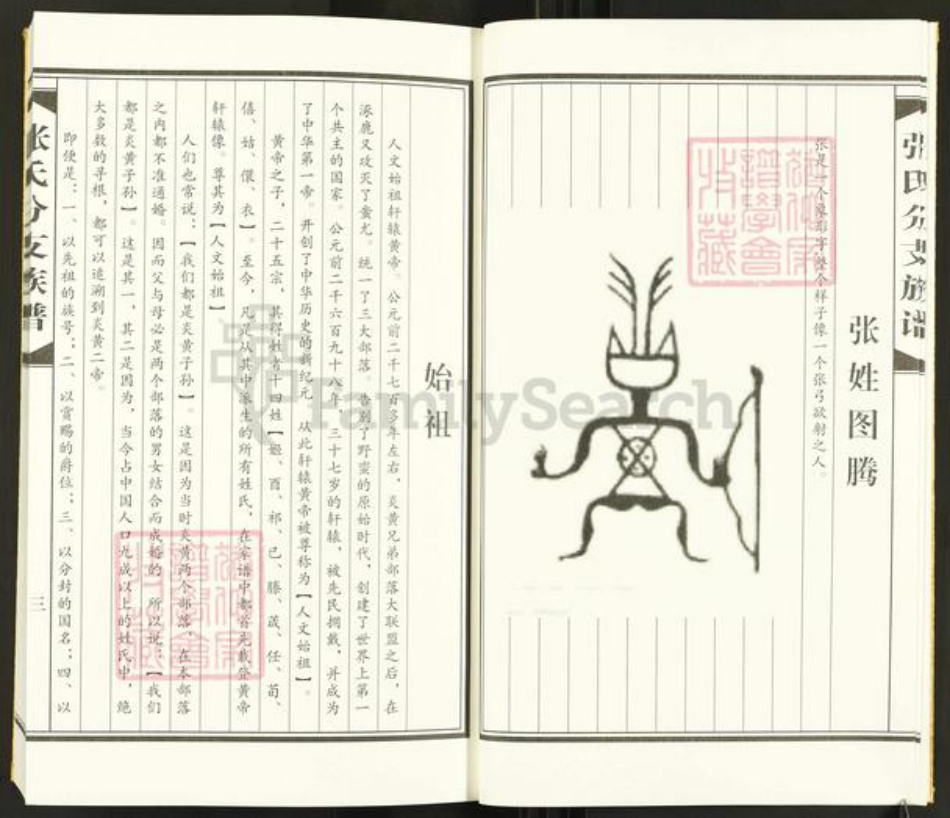 张氏分支族谱
张姓图腾
张是一个象形字整个样子像一个张弓欲射之人。
始祖
人文始祖轩辕黄帝。公元前二千七百多年左右,炎黄兄弟部落大联盟之后,在
涿鹿又攻灭了蚩尤。统一了三大部落。告别了野蛮的原始时代,创建了世界上第一
个共主的国家。公元前二千六百九十八年,三十七岁的轩辕,被先民拥戴,并成为
了中华第一帝。开创了中华历史的新纪元 从此轩辕黄帝被尊称为【人文始祖】。
黄帝之子,二十五宗,其得姓者十四姓【姬、酉、祁、己、滕、葴、任、荀、
僖、姞、儇、衣】。至今,凡是从其中派生的所有姓氏,在家谱中都首先载登黄帝
轩辕像。尊其为【人文始祖】
人们也常说:【我们都是炎黄子孙】。这是因为当时炎黄两个部落,在本部落
之内都不准通婚。因而父与母必是两个部落的男女结合而成婚的,所以说:【我们
都是炎黄子孙】。这是其一,其二是因为,当今占中国人口九成以上的姓氏中,绝
大多数的寻根,都可以追溯到炎黄二帝。
即便是:一、以先祖的族号;二、以赏赐的爵位;三、以分封的国名;四、以
张氏分支族谱
三
FamilySearch